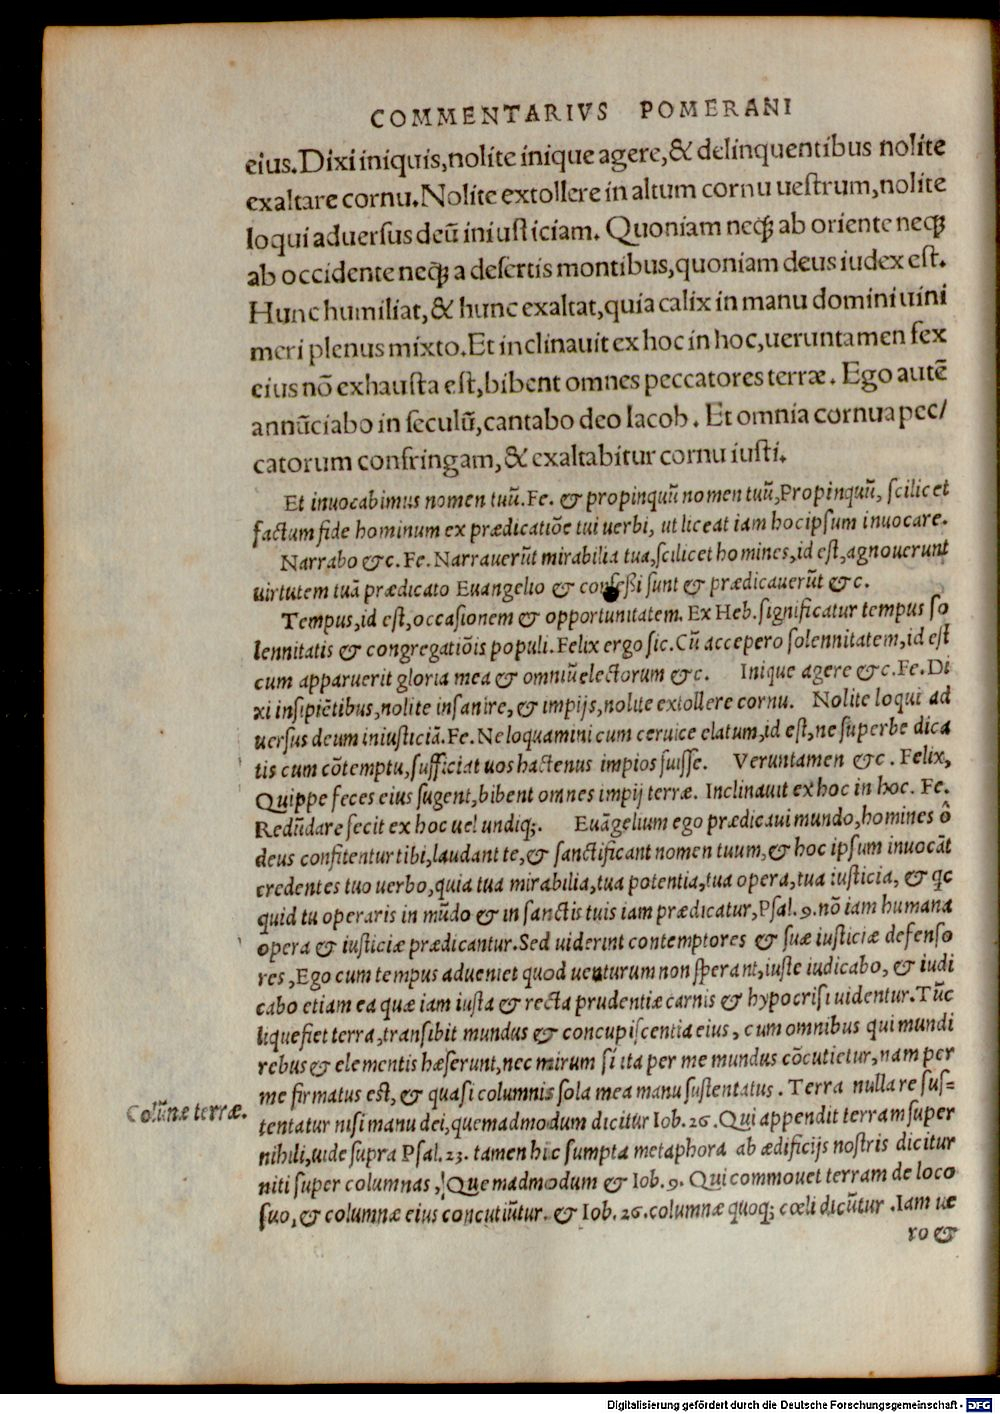 COMMENTARIVS POMERANI
eius. Dixi iniquis, nolite inique agere, & delinquentibus nolite
exaltare cornu. Nolite extollere in altum cornu uestrum, nolite
loqui aduersus deū iniusticiam. Quoniam neqꝫ ab oriente neqꝫ
ab occidente neqꝫ a desertis montibus, quoniam deus iudex est.
Hunc humiliat, & hunc exaltat, quia calix in manu domini uini
meri plenus mixto. Et inclinauit ex hoc in hoc, ueruntamen fex
eius nō exhausta est, bibent omnes peccatores terræ. Ego autē
annūciabo in seculū, cantabo deo Iacob. Et omnia cornua pec/
catorum confringam, & exaltabitur cornu iusti.
Et inuocabimus nomen tuū. Fe. & propinquū nomen tuū, Propinquū, scilicet
factum fide hominum ex prædicatiōe tui uerbi, ut liceat iam hocipsum inuocare.
Narrabo &c. Fe. Narrauerūt mirabilia tua, scilicet homines, id est, agnouerunt
uirtutem tuā prædicato Euangelio & confeßi sunt & prædicauerūt &c.
Tempus, id est, occasionem & opportunitatem. Ex Heb. significatur tempus so
lennitatis & congregatiōis populi. Felix ergo sic. Cū accepero solennitatem, id est
cum apparuerit gloria mea & omniū electorum &c. Inique agere &c. Fe. Di
xi insipiētibus, nolite insanire, & impijs, nolite extollere cornu. Nolite loqui ad
uersus deum iniusticiā. Fe. Ne loquamini cum ceruice elatum, id est, ne superbe dica
tis cum cōtemptu, sufficiat uos hactenus impios fuisse. Veruntamen &c. Felix,
Quippe feces eius sugent, bibent omnes impij terræ. Inclinauit ex hoc in hoc. Fe.
Redūdare fecit ex hoc uel undiqꝫ. Euāgelium ego prædicaui mundo, homines ô
deus confitentur tibi, laudant te, & sanctificant nomen tuum, & hoc ipsum inuocāt
credentes tuo uerbo, quia tua mirabilia, tua potentia, tua opera, tua iusticia, & qc
quid tu operaris in mūdo & in sanctis tuis iam prædicatur, Psal. 9. nō iam humana
opera & iusticiæ prædicantur. Sed uiderint contemptores & suæ iusticiæ defenso
res, Ego cum tempus adueniet quod uenturum non sperant, iuste iudicabo, & iudi
cabo etiam ea quæ iam iusta & recta prudentiæ carnis & hypocrisi uidentur. Tūc
liquefiet terra, transibit mundus & concupiscentia eius, cum omnibus qui mundi
rebus & elementis hæserunt, nec mirum si ita per me mundus cōcutietur, nam per
me firmatus est, & quasi columnis sola mea manu sustentatus. Terra nulla re sus=
Colūnæ terræ.
tentatur nisi manu dei, quemadmodum dicitur Iob. 26. Qui appendit terram super
nihili, uide supra Psal. 23. tamen hic sumpta metaphora ab ædificijs nostris dicitur
niti super columnas, Quemadmodum & Iob. 9. Qui commouet terram de loco
suo, & columnæ eius concutiūtur. & Iob. 26. columnæ quoqꝫ cœli dicūtur. Iam ue
ro &
Digitalisierung gefördert durch die Deutsche Forschungsgemeinschaft - DFG